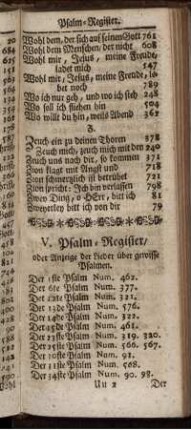 Psalm-Register.
Wohl dem, der sich auf seinen Gott 761
Wohl dem Menschen, der nicht 608
Wohl mir, Jesus, meine Freude,
ladet mich 147
Wohl mir, Jesus, meine Freude, lo
bet noch 789
Wo ich nur geh, und wo ich steh 248
Wo soll ich fliehen hin 504
Wo willt du hin, weils Abend 362
Z.
Zeuch ein zu deinen Thoren 378
Zeuch mich, zeuch mich mit den 240
Zeuch uns nach dir, so kommen 371
Zion klagt mit Angst und 718
Zion spricht: Ich bin verlassen 798
Zwey Ding, o HErr, bitt ich 51
Zweyerley bitt ich von dir 79
V. Psalm-Register/
oder Anzeige der Lieder über gewisse
Psalmen.
Der 1ste Psalm Num. 462.
Der 6te Psalm Num. 377.
Der 12te Psalm Num. 321.
Der 13de Psalm Num. 576.
Der 14de Psalm Num. 322.
Der 15de Psalm Num. 461.
Der 23ste Psalm Num. 319. 320.
Der 25ste Psalm Num. 566. 567.
Der 30ste Psalm Num. 91.
Der 31ste Psalm Num. 568.
Der 34ste Psalm Num. 90. 98.
Uu 2 Der